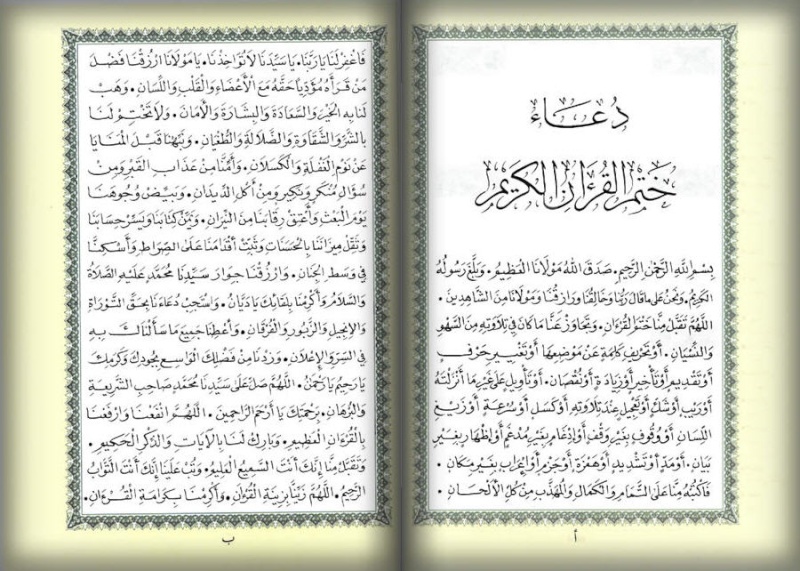 دُعَاءُ
خَتْمِ الْقُرْءَانِ الْكَرِيمِ
بِسْمِ اللهِ الرَّحْمٰنِ الرَّحِيمِ. صَدَقَ اللهُ مَوْلَانَا الْعَظِيمُ. وَبَلَّغَ رَسُولُهُ
الْكَرِيمُ. وَنَحْنُ عَلَى مَا قَالَ رَبُّنَا وَخَالِقُنَا وَرَازِقُنَا وَمَوْلَانَا مِنَ الشَّاهِدِينَ.
اللَّهُمَّ تَقَبَّلْ مِنَّا خَتْمَ الْقُرْءَانِ. وَتَجَاوَزْ عَنَّا مَا كَانَ فِي تِلَاوَتِهِ مِنَ السَّهْوِ
وَالنِّسْيَانِ. أَوْ تَحْرِيفِ كَلِمَةٍ عَنْ مَوْضِعِهَا أَوْ تَغْيِيرِ حَرْفٍ
أَوْ تَقْدِيمٍ أَوْ تَأْخِيرٍ أَوْ زِيَادَةٍ أَوْ نُقْصَانٍ. أَوْ تَأْوِيلٍ عَلَى غَيْرِ مَا أَنْزَلْتَهُ
أَوْ رَيْبٍ أَوْ شَكٍّ أَوْ تَعْجِيلٍ عِنْدَ تِلَاوَتِهِ أَوْ كَسَلٍ أَوْ سُرْعَةٍ أَوْ زَيْغِ
اللِّسَانِ أَوْ وُقُوفٍ بِغَيْرِ وَقْفٍ أَوْ إِدْغَامٍ بِغَيْرِ مُدْغَمٍ أَوْ إِظْهَارٍ بِغَيْرِ
بَيَانٍ. أَوْ مَدٍّ أَوْ تَشْدِيدٍ أَوْ هَمْزَةٍ أَوْ جَزْمٍ أَوْ إِعْرَابٍ بِغَيْرِ مَكَانٍ.
فَاكْتُبْهُ مِنَّا عَلَى التَّمَامِ وَالْكَمَالِ وَالْمُهَذَّبِ مِنْ كُلِّ الْأَلْحَانِ.
أ
فَاغْفِرْ لَنَا يَا رَبَّنَا. يَا سَيِّدَنَا لَا تُؤَاخِذْنَا. يَا مَوْلَانَا ارْزُقْنَا فَضْلَ
مَنْ قَرَأَهُ مُؤَدِّيًا حَقَّهُ مَعَ الْأَعْضَاءِ وَالْقَلْبِ وَاللِّسَانِ. وَهَبْ
لَنَا بِهِ الْخَيْرَ وَالسَّعَادَةَ وَالْبِشَارَةَ وَالْأَمَانَ. وَلَا تَخْتِمْ لَنَا
بِالشَّرِّ وَالشَّقَاوَةِ وَالضَّلَالَةِ وَالطُّغْيَانِ. وَنَبِّهْنَا قَبْلَ الْمَنَايَا
عَنْ نَوْمِ الْغَفْلَةِ وَالْكَسَلَانِ. وَأَمِّنَّا مِنْ عَذَابِ الْقَبْرِ وَمِنْ
سُؤَالِ مُنْكَرٍ وَنَكِيرٍ وَمِنْ أَكْلِ الدِّيدَانِ. وَبَيِّضْ وُجُوهَنَا
يَوْمَ الْبَعْثِ وَأَعْتِقْ رِقَابَنَا مِنَ النِّيرَانِ. وَيَمِّنْ كِتَابَنَا وَيَسِّرْ حِسَابَنَا
وَثَقِّلْ مِيزَانَنَا بِالْحَسَنَاتِ وَثَبِّتْ أَقْدَامَنَا عَلَى الصِّرَاطِ وَأَسْكِنَّا
فِي وَسَطِ الْجِنَانِ. وَارْزُقْنَا جِوَارَ سَيِّدِنَا مُحَمَّدٍ عَلَيْهِ الصَّلَاةُ
وَالسَّلَامُ وَأَكْرِمْنَا بِلِقَائِكَ يَا دَيَّانُ. وَاسْتَجِبْ دُعَاءَنَا بِحَقِّ التَّوْرَاةِ
وَالْإِنْجِيلِ وَالزَّبُورِ وَالْفُرْقَانِ. وَأَعْطِنَا جَمِيعَ مَا سَأَلْنَاكَ بِهِ
فِي السِّرِّ وَالْإِعْلَانِ. وَزِدْنَا مِنْ فَضْلِكَ الْوَاسِعِ بِجُودِكَ وَكَرَمِكَ
يَا رَحِيمُ يَا رَحْمٰنُ. اللَّهُمَّ صَلِّ عَلَى سَيِّدِنَا مُحَمَّدٍ صَاحِبِ الشَّرِيعَةِ
وَالْبُرْهَانِ. بِرَحْمَتِكَ يَا أَرْحَمَ الرَّاحِمِينَ. اللَّهُمَّ انْفَعْنَا وَارْفَعْنَا
بِالْقُرْءَانِ الْعَظِيمِ. وَبَارِكْ لَنَا بِالْآيَاتِ وَالذِّكْرِ الْحَكِيمِ.
وَتَقَبَّلْ مِنَّا إِنَّكَ أَنْتَ السَّمِيعُ الْعَلِيمُ. وَتُبْ عَلَيْنَا إِنَّكَ أَنْتَ التَّوَّابُ
الرَّحِيمُ. اللَّهُمَّ زَيِّنَّا بِزِينَةِ الْقُرْءَانِ. وَأَكْرِمْنَا بِكَرَامَةِ الْقُرْءَانِ.
ب